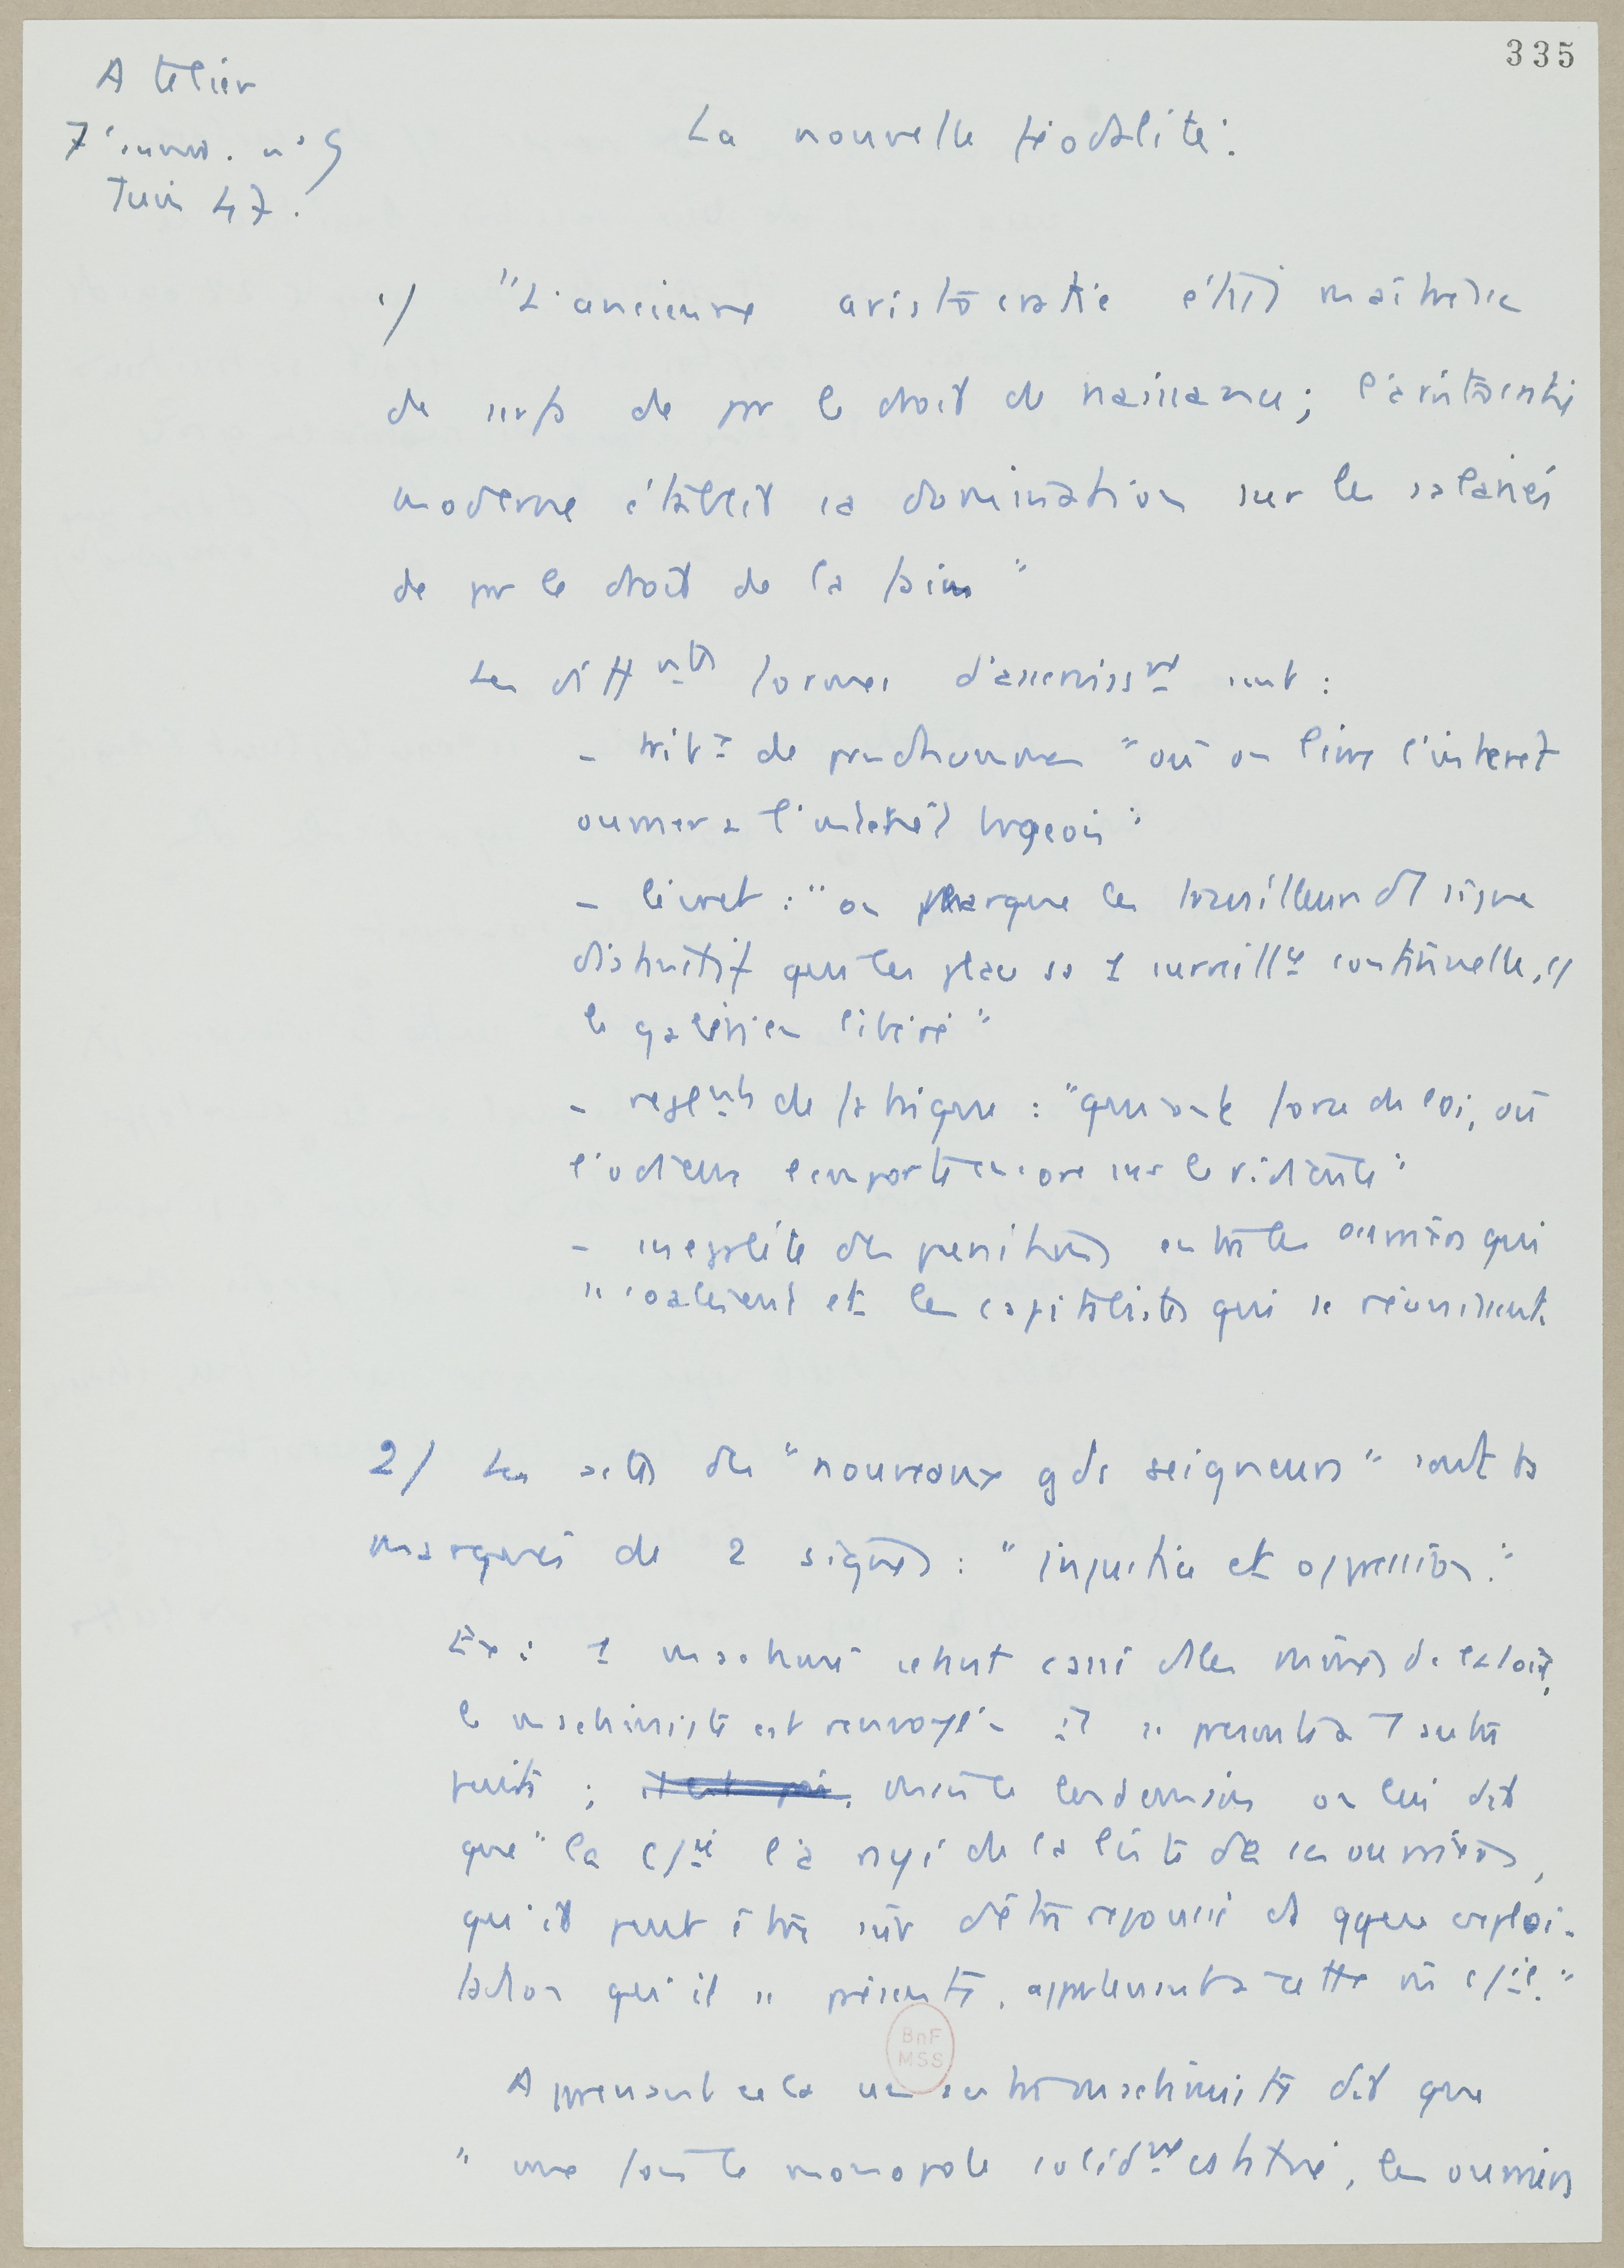 335
Atelier
7e année. n° 9
Juin 47.
La nouvelle féodalité:
1/ "L'ancienne aristocratie était maîtresse
de serfs de pr le droit de naissance; l'aristocratie
moderne établit sa domination sur les salariés
de pr le droit de la faim"
Les diffntes formes d'asservissmt sont :
- tribx de prudhommes "où on livre l'intérêt
ouvrier à l'intérêt brgeois"
- livret : "on marque les travailleurs d'1 signe
distinctif qui les place ss 1 surveillce continuelle, c/
le galérien libéré"
- reglnts de fabrique : "qui ont force de loi, où
l'odieux emporte encore sur le ridicule"
- inégalité des pénalités entre les ouvriers qui
se coalisent et les capitalistes qui se réunissent.
2/ Les actes des "nouveaux gds seigneurs" sont ts
marqués de 2 signes : "injustice et oppression."
Ex : 1 machine s'étant cassé ds les mines de la Loire,
le machiniste est renvoyé - il se présente à 1 autre
puits ; mais le lendemain on lui dit
que "la c/ie l'a rayé de la liste de ses ouvriers,
qu'il peut être sûr d'être repoussé ds qque exploi-
tation qu'il se présente, appartenant à cette m̂ c/ie."
Apprenant cela un autre machiniste dit que
"une fois le monopole solidmt constitué, les ouvriers
BnF
MSS